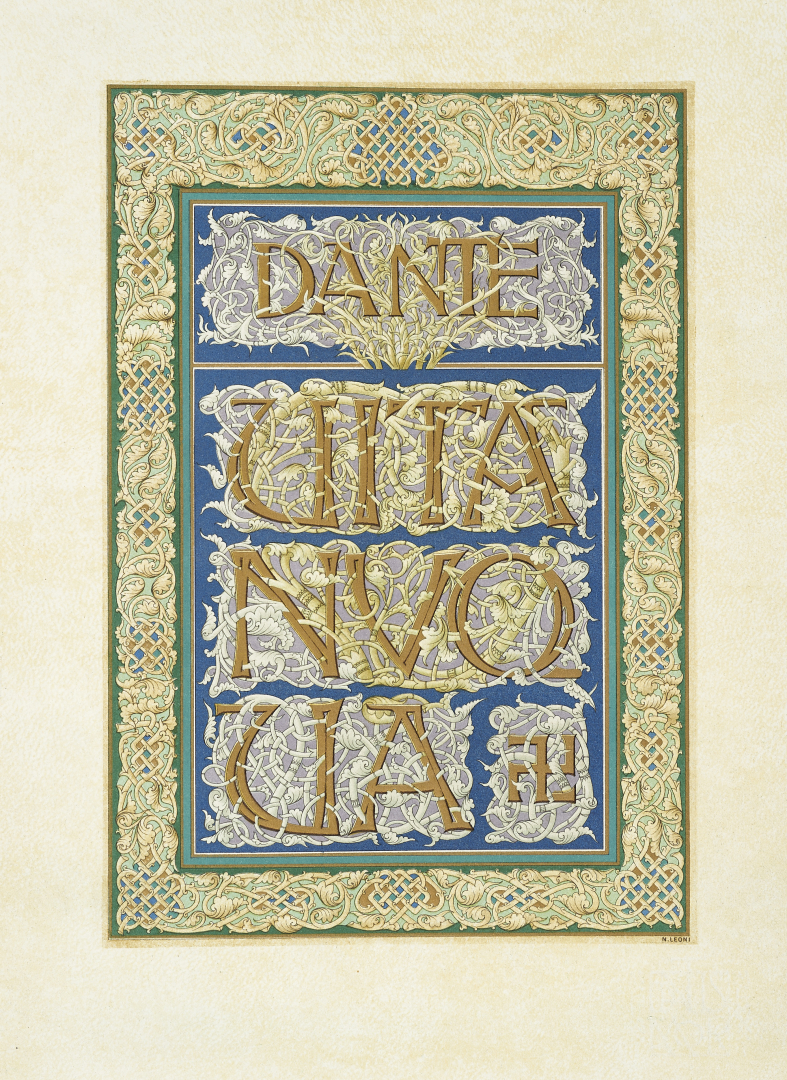 DANTE
UITA
NVO
UA 卍
N. LEONI